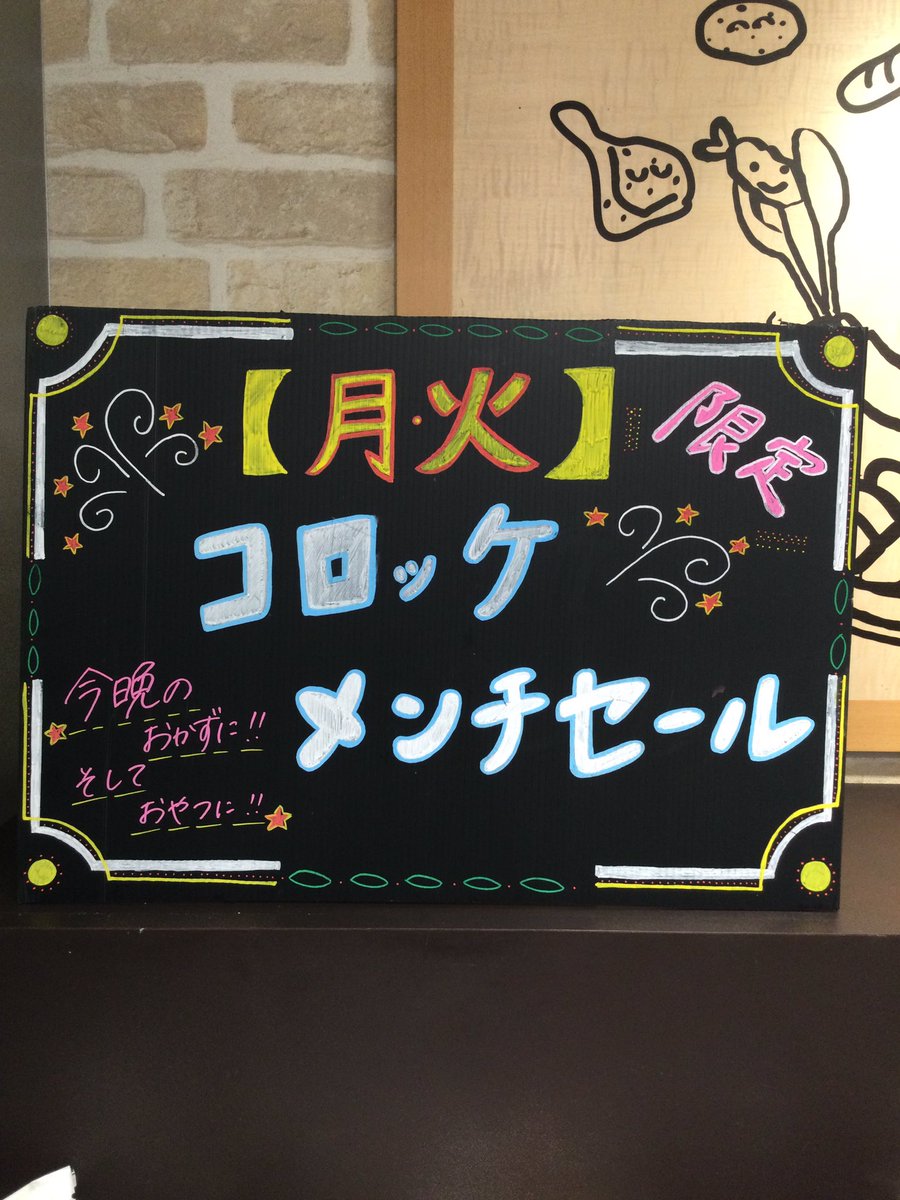 【月・火】限定
コロッケ
メンチセール
今晩の
おかずに!!
そして
おやつに!!